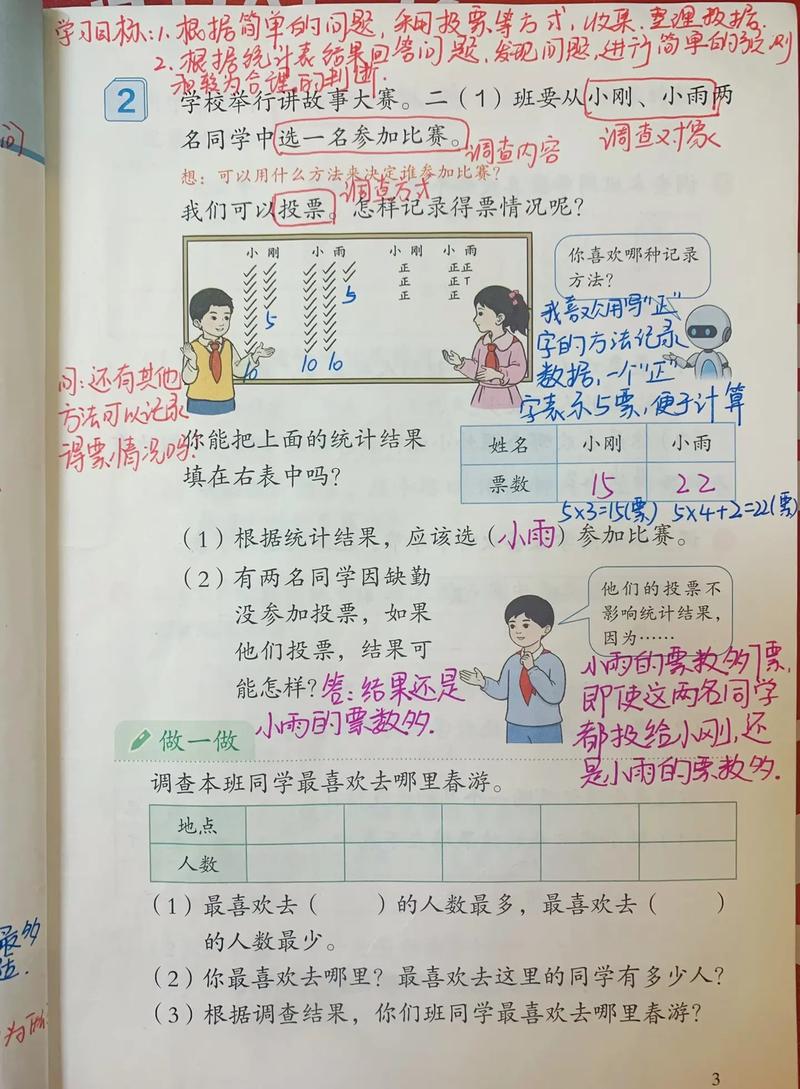 学习目标:1.根据简单的问题,采用投票等方式,收集.整理数据.
2.根据统计表结果回答问题,发现问题,进行简单的预测
和较为合理的判断.
2 学校举行讲故事大赛。二(1)班要从小刚、小雨两
名同学中选一名参加比赛。
调查内容
调查对象
想:可以用什么方法来决定谁参加比赛?
调查方式
我们可以投票。怎样记录得票情况呢?
小 刚 小 雨 小 刚 小 雨
正 正正
正 正T
正 正
5 5
10 10 10
你喜欢哪种记录
方法?
我喜欢用写“正”
字的方法记录
数据,一个“正”
字表示5票,便于计算
问:还有其他
方法可以记录
得票情况吗?
你能把上面的统计结果
填在右表中吗?
姓名 小刚 小雨
票数 15 22
5×3=15(票) 5×4+2=22(票)
(1)根据统计结果,应该选(小雨)参加比赛。
(2)有两名同学因缺勤
没参加投票,如果
他们投票,结果可
能怎样?答:结果还是
小雨的票数多.
他们的投票不
影响统计结果,
因为……
小雨的票数多7票,
即使这两名同学
都投给小刚,还
是小雨的票数多.
做一做
调查本班同学最喜欢去哪里春游。
地点
人数
(1)最喜欢去( )的人数最多,最喜欢去( )
的人数最少。
(2)你最喜欢去哪里?最喜欢去这里的同学有多少人?
(3)根据调查结果,你们班同学最喜欢去哪里春游?
最多
3